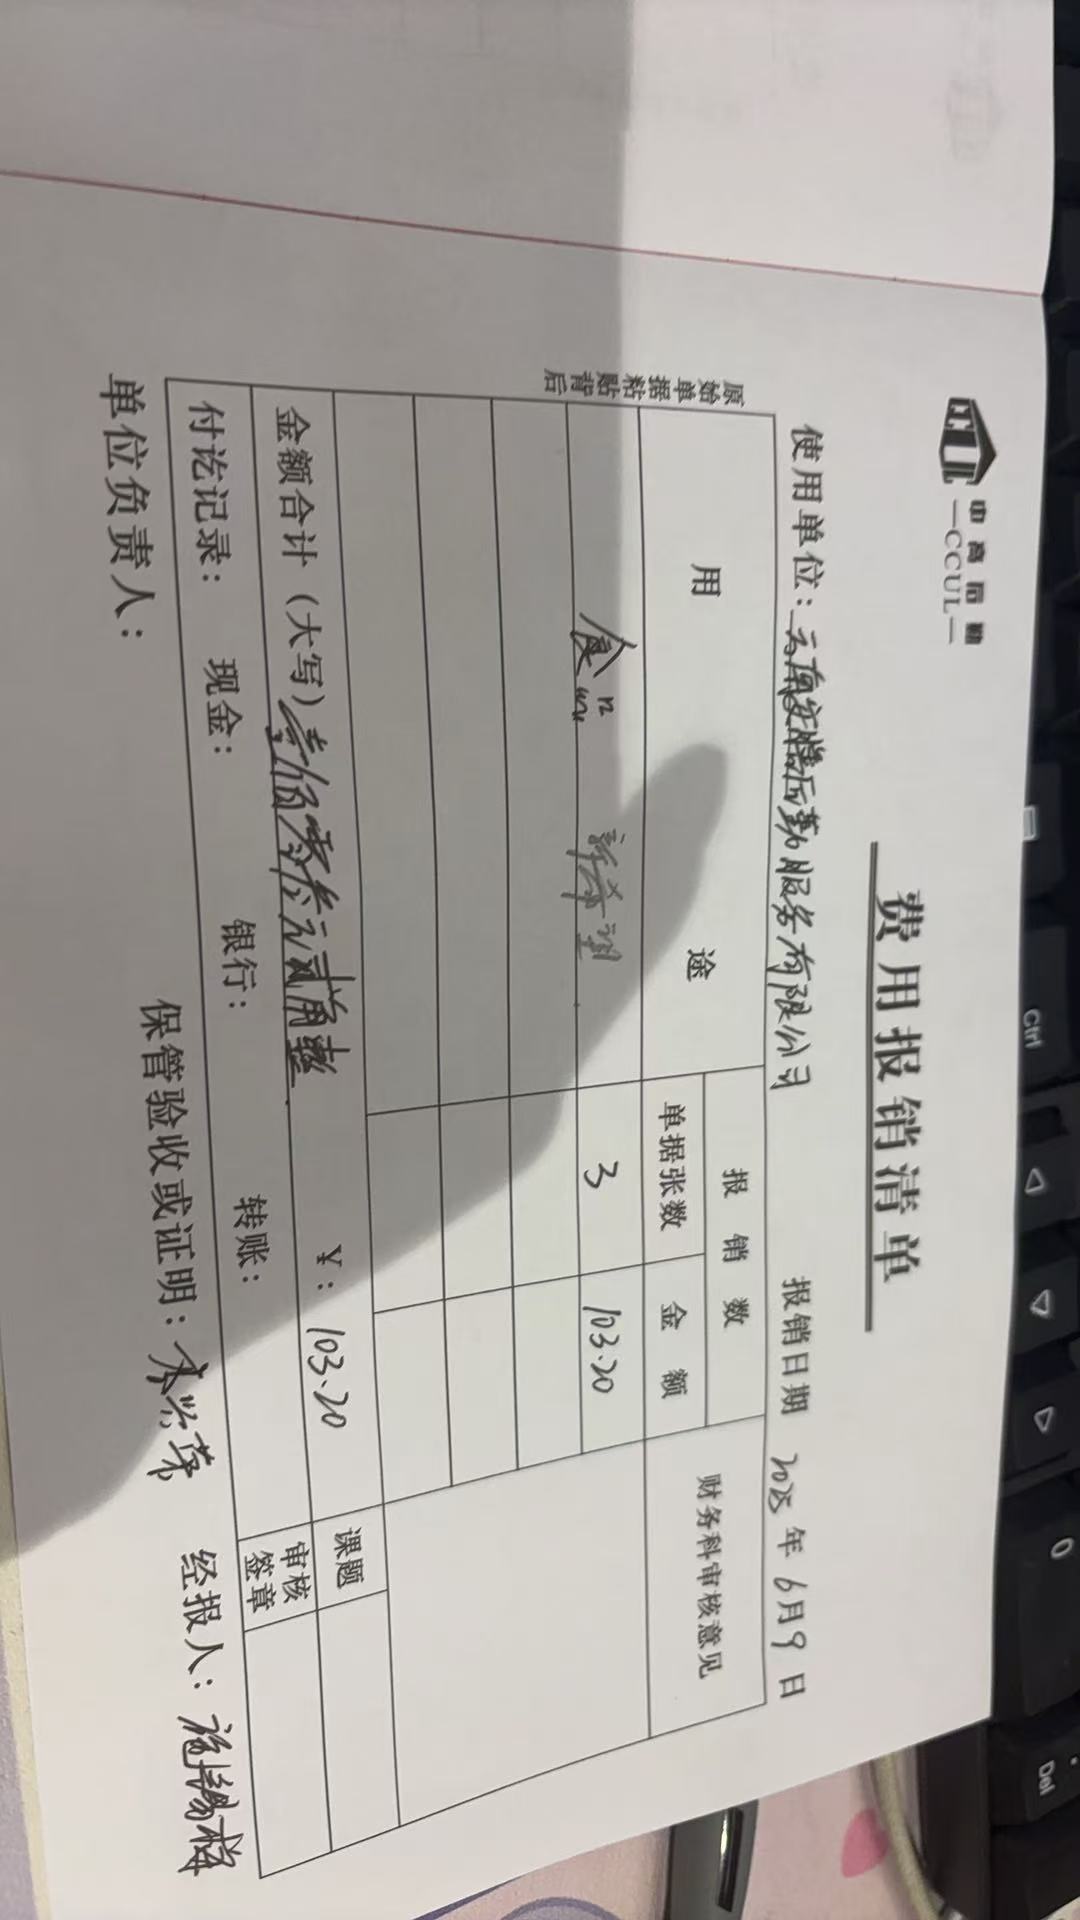 中高后勤
—CCUL—
费用报销清单
使用单位：云南安腾后勤服务有限公司 报销日期 2025年6月9日
原始单据粘贴背后
用途 报销数 财务科审核意见
单据张数 金额
食品 新希望 3 103.20
金额合计（大写）壹佰零叁元贰角整 ￥：103.20 课题
付讫记录： 现金： 银行： 转账： 审核签章
单位负责人： 保管验收或证明： 经报人：
Ctrl
0
Del